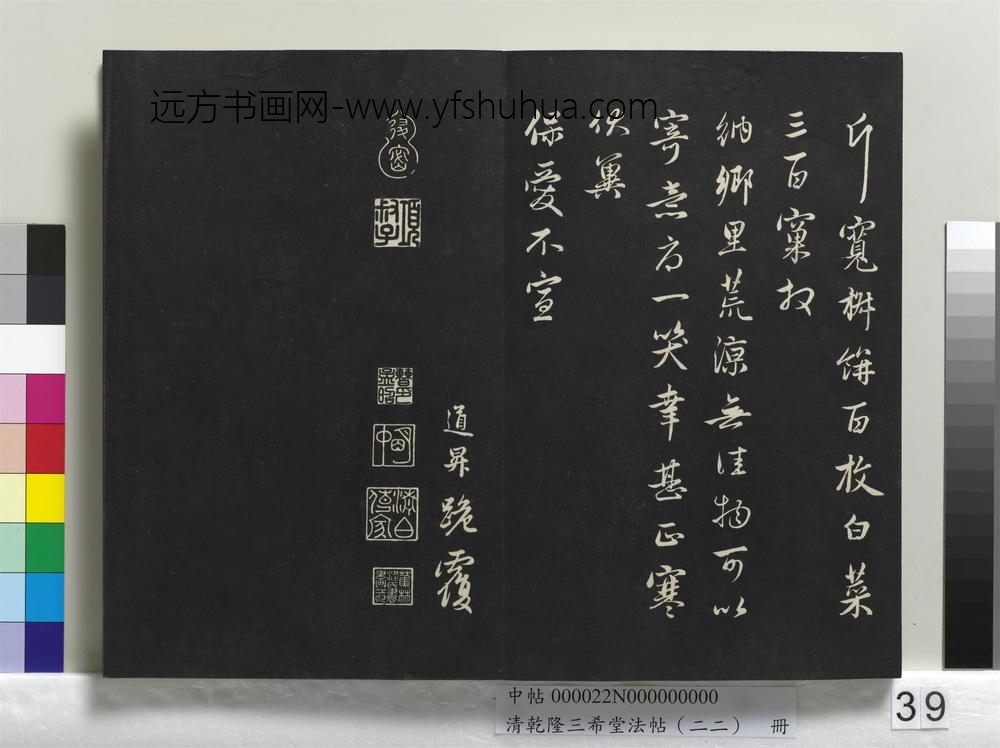 远方书画网-www.yfshuhua.com
斤寬栟餅百枚白菜
三百窠
納鄉里荒涼無佳物可以
寄意為一笑幸甚正寒
伏冀
保愛不宣
道昇跪覆
項叔子
中帖 000022N000000000
清乾隆三希堂法帖（二二） 冊
39